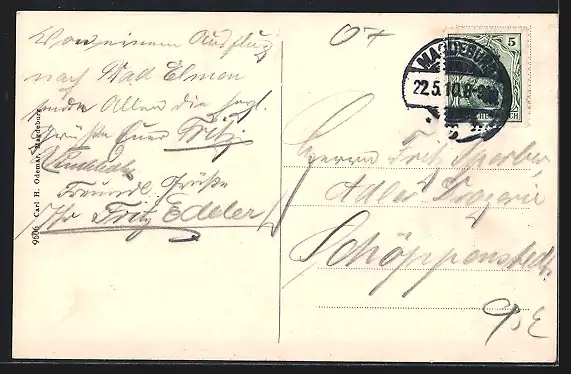 Von einem Ausflug
nach Bad Elmen
sende Allen die herzl.
Grüße Euer Fritz
Freundl. Grüße
Ihr Fritz Edeler
9606 Carl H. Odemar, Magdeburg
MAGDEBURG
22.5.10.8-9
5
Herrn Fritz Sperber
Adler Drogerie
Schöppenstedt